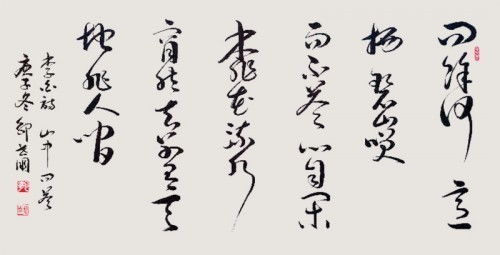 問余何意
栖碧山笑
而不答心自闲
桃花流水
窅然去别有天
地非人间
李白詩 山中问答
庚子冬